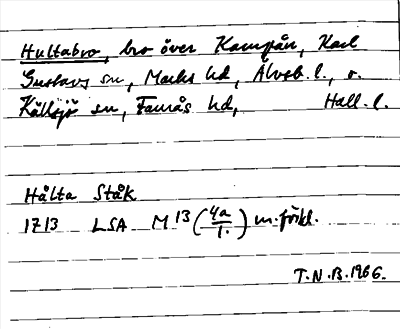 Hultabro, bro över Kampån, Karl
Gustavs sn, Marks hd, Älvsb. l., o.
Källsjö sn, Faurås hd, Hall. l.
Hålta Ståk
1713 LSA M 13 (4a/1.) m. förkl.
T.N.B. 1966.